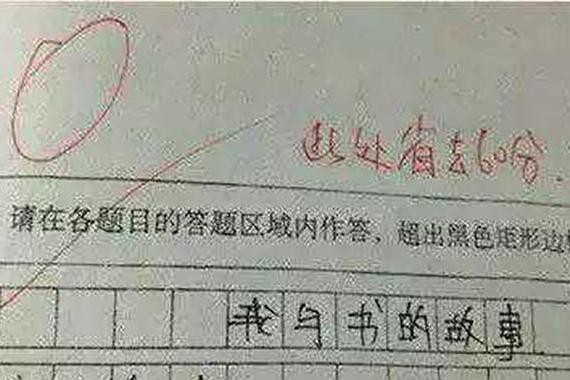 此处省去60分.
请在各题目的答题区域内作答，超出黑色矩形边
我与书的故事